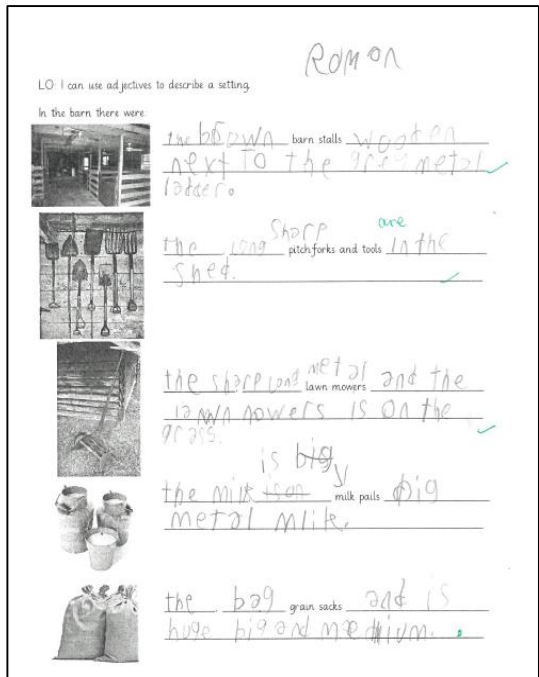 Roman
LO: I can use adjectives to describe a setting.
In the barn there were:
the brown barn stalls wooden
next to the grey metal
ladder.
sharp are
the long pitchforks and tools in the
shed.
metal
the sharp long lawn mowers and the
lawn nowers is on the
grass.
is big
the milk milk pails big
metal mlik.
the bag grain sacks and is
huge big and medium.